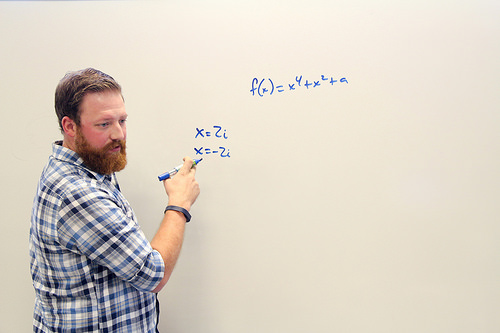 f(x) = x⁴ + x² + a
x = 2i
x = -2i